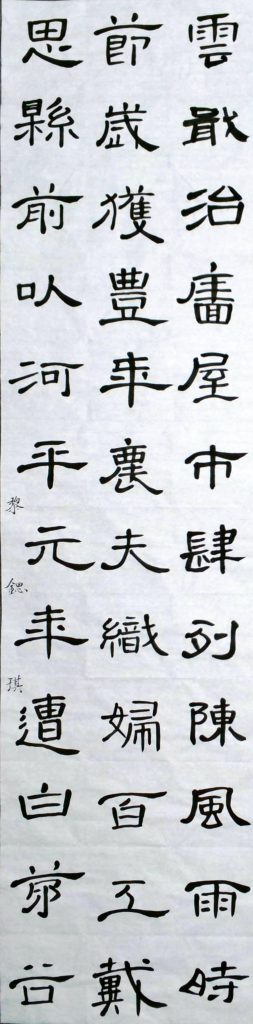 雲戢治廧屋市肆列陳風雨時
節歲獲豊年農夫織婦百工戴
恩縣前以河平元年遭白茅谷
黎鍶琪